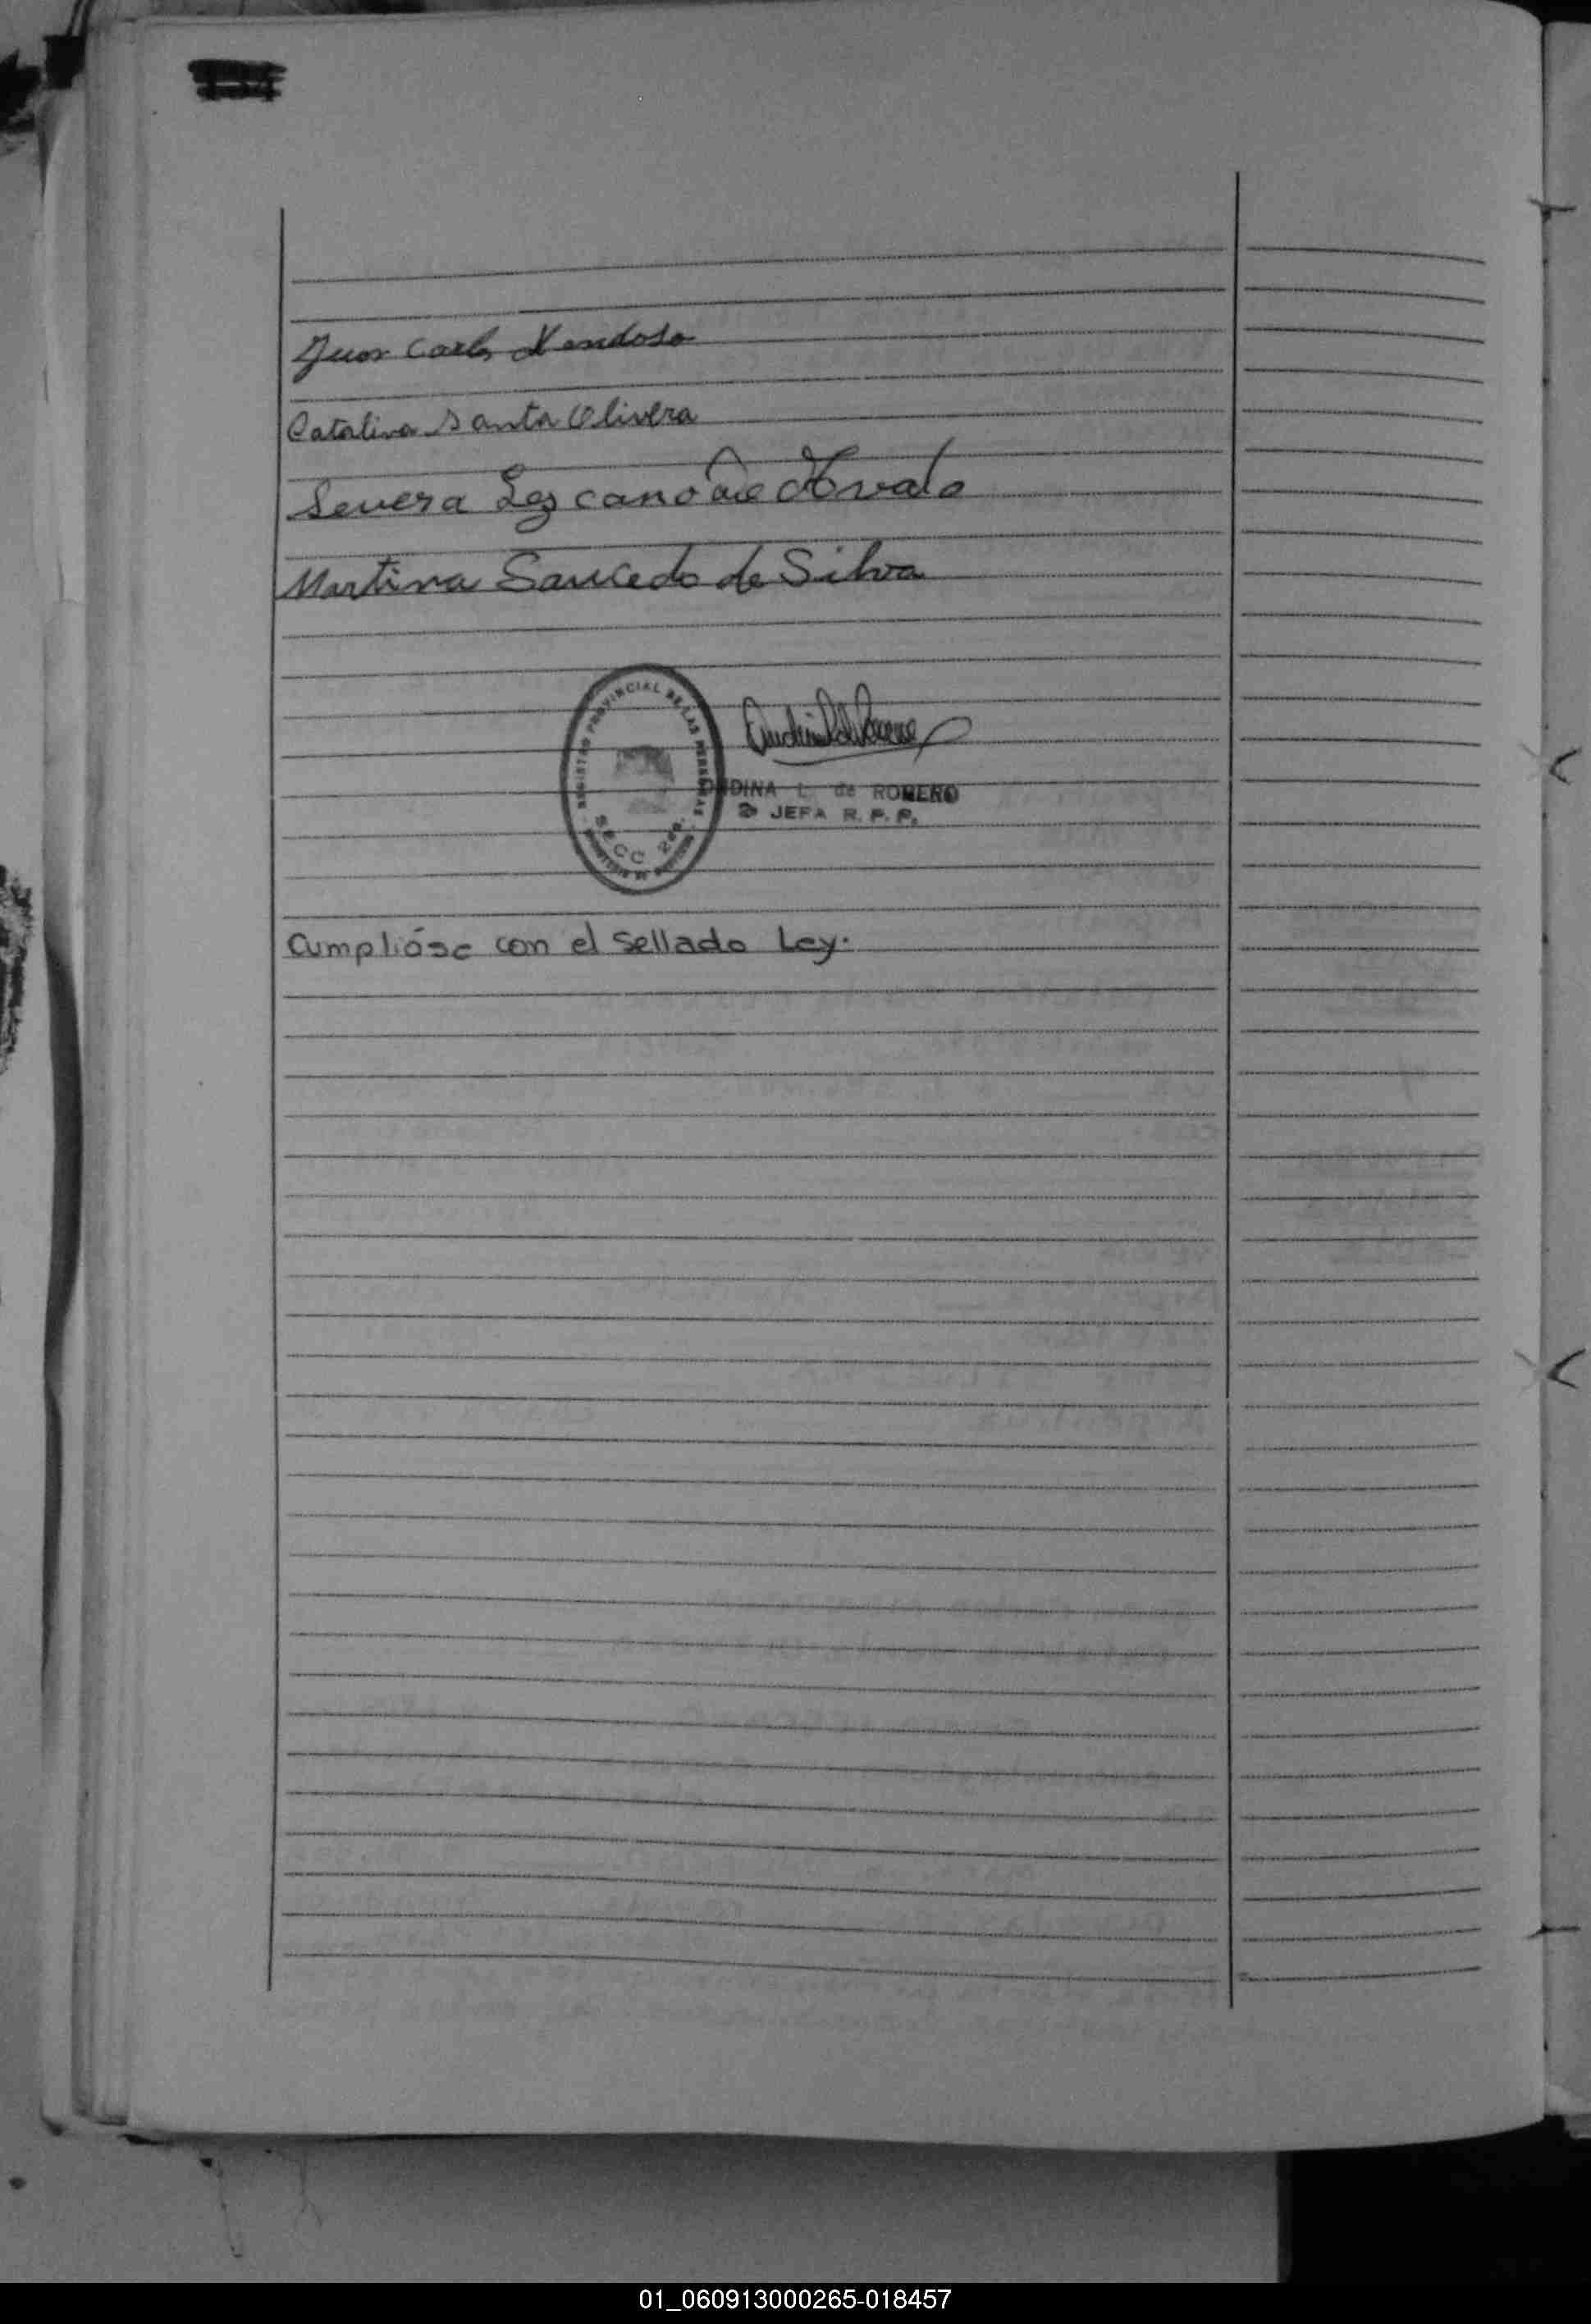 Juan Carlos Mendoso
Catalina Santa Olivera
Severa Lezcano de Ovalo
Martina Saucedo de Silva
REGISTRO PROVINCIAL DE LAS PERSONAS
SECC 2da.
L. de ROMERO
JEFA R. P. P.
Cumplióse con el sellado Ley.
01_060913000265-018457